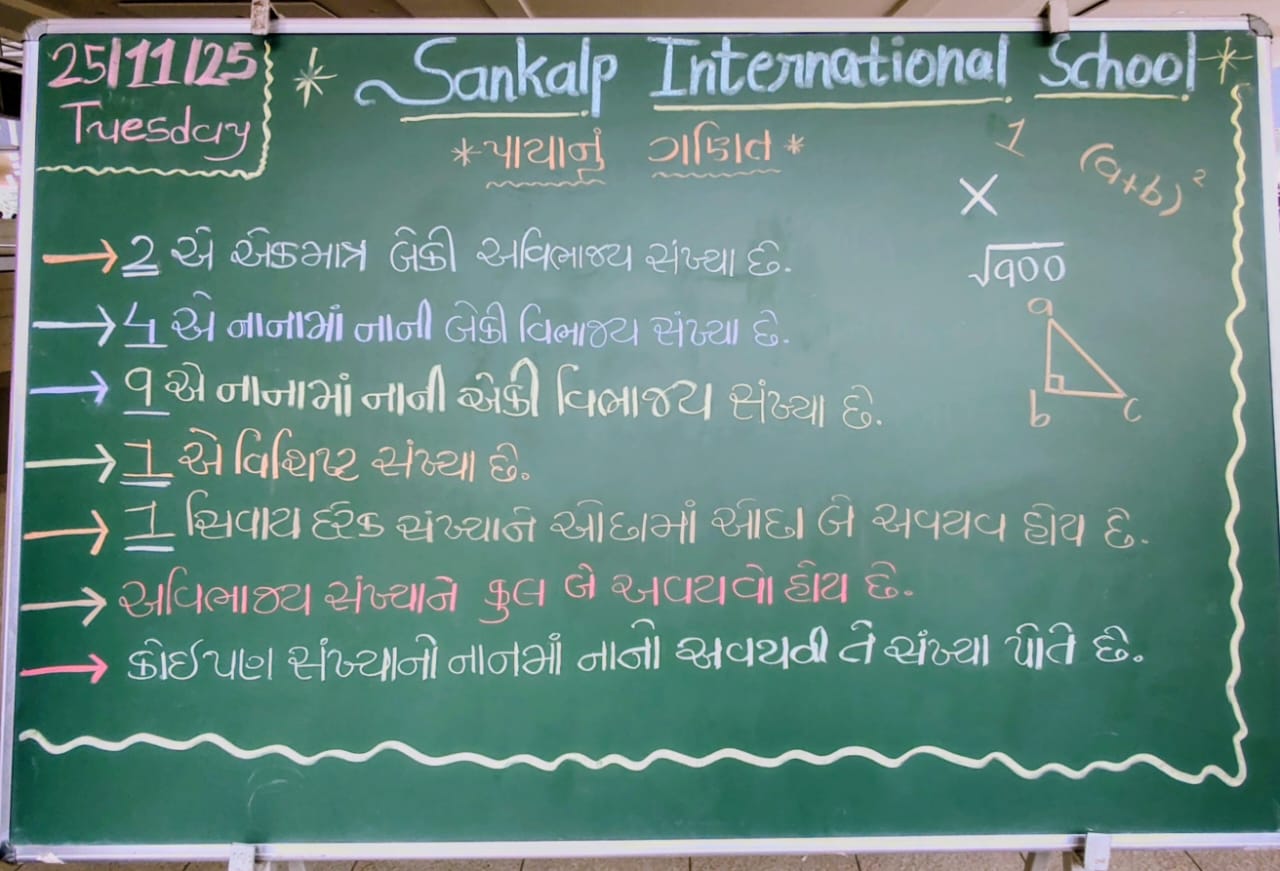 25/11/25
Tuesday
Sankalp International School
* પાયાનું ગણિત *
1
(a+b)²
×
√900
→ 2 એ એકમાત્ર બેકી અવિભાજ્ય સંખ્યા છે.
→ 4 એ નાનામાં નાની બેકી વિભાજ્ય સંખ્યા છે.
→ 9 એ નાનામાં નાની એકી વિભાજ્ય સંખ્યા છે.
→ 1 એ વિશિષ્ટ સંખ્યા છે.
→ 1 સિવાય દરેક સંખ્યાને ઓછામાં ઓછા બે અવયવ હોય છે.
→ અવિભાજ્ય સંખ્યાને કુલ બે અવયવો હોય છે.
→ કોઈપણ સંખ્યાનો નાનમાં નાનો અવયવી તે સંખ્યા પોતે છે.
a
b
c